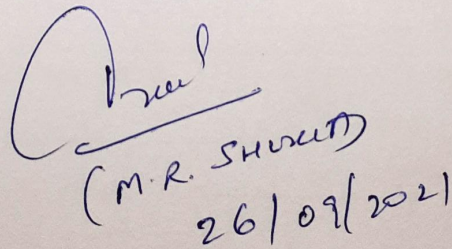 (M.R. SHUKLA)
26/09/2021